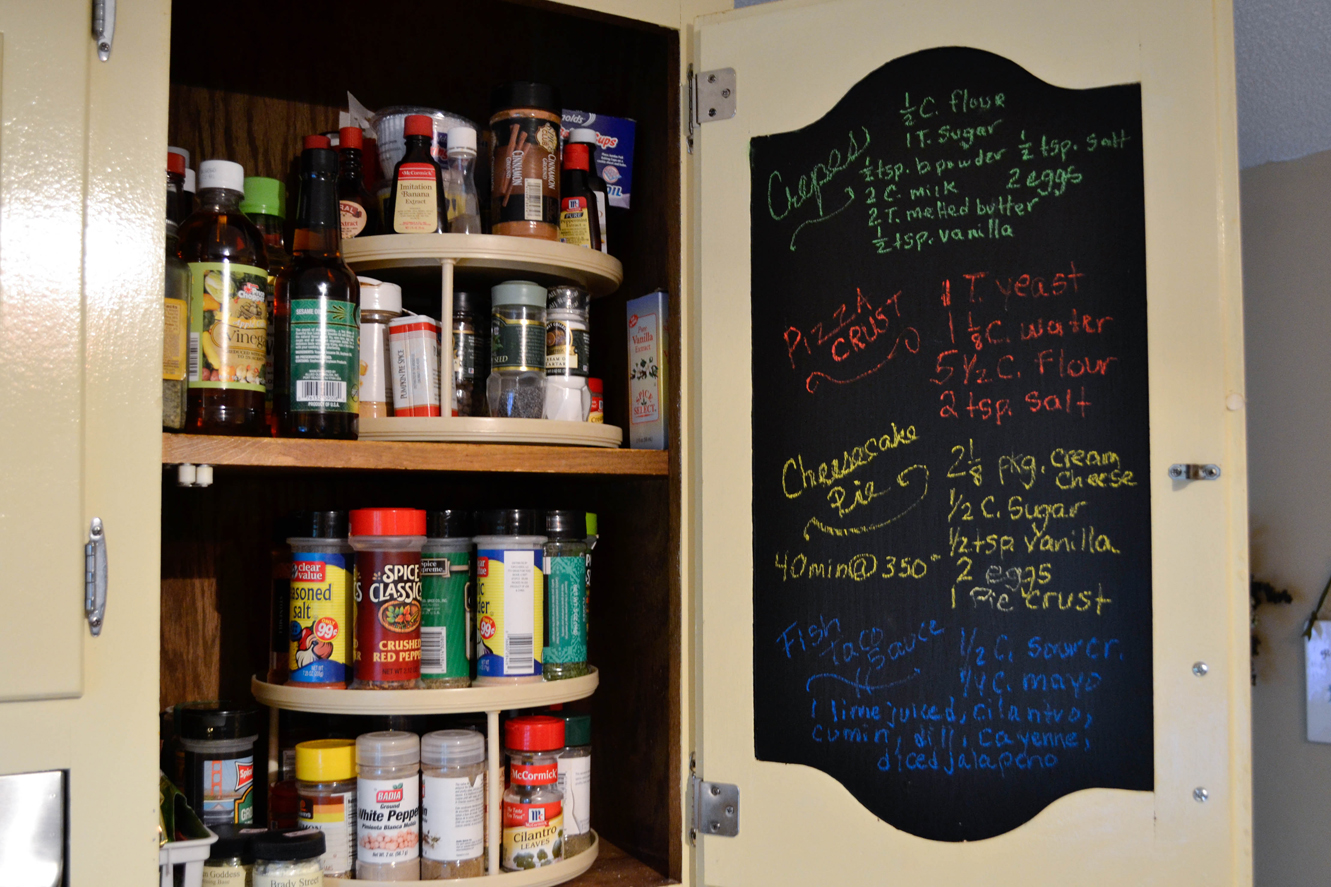 ½ C. flour
1 T. Sugar
Crepes
½ tsp. b powder ½ tsp. salt
2 C. milk 2 eggs
2 T. melted butter
½ tsp. vanilla
PIZZA
CRUST
1 T. yeast
1 ⅛ C. water
5 1/2 C. Flour
2 tsp. salt
Cheesecake
Pie
2 ⅛ pkg. cream
cheese
1/2 C. Sugar
1/2 tsp vanilla
40min@350°
2 eggs
1 Pie crust
Fish
Taco
Sauce
1/2 C. sour cr.
1/4 C. mayo
1 lime juiced, cilantro,
cumin, dill, cayenne,
diced jalapeno
McCormick
Imitation
Banana
Extract
CINNAMON
PURE
PUMPKIN PIE SPICE
Pure
Vanilla
Extract
SELECT
SESAME
PRODUCT OF U.S.A.
clear
value
salt
99¢
SPICE
CLASSIC
CRUSHED
RED PEPP
99¢
BADIA
Ground
White Peppe
Pimienta Blanca
McCormick
Cilantro
LEAVES
Goddess
Brady Street